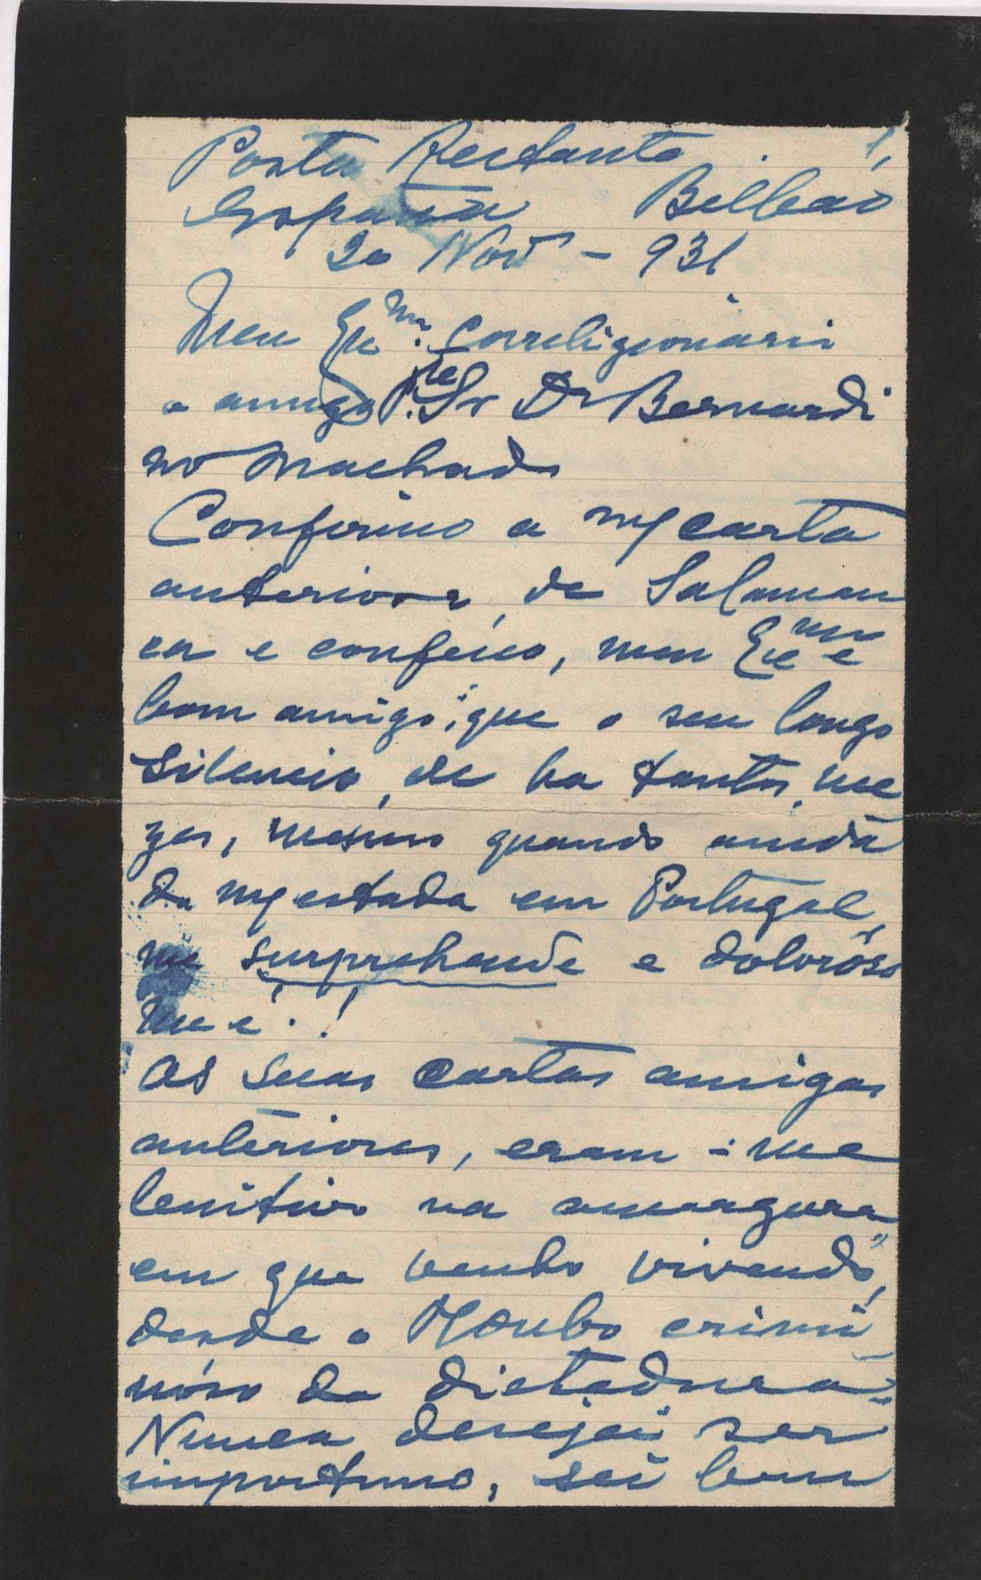 1,
Posta Restante
Espanha Bilbao
20 Nov - 931
Meu Exmo. Correligionario
e amigo Sr Dr Bernardi
no Machado
Confirmo a m/ carta
anterior, de Salaman
ca e confesso, meu Exmo e
bom amigo, que o seu longo
Silencio, de ha tantos me
zes, mesmo quando ainda
da m/ estada em Portugal,
me surprehende e doloróso
me é.!
As suas cartas amigas
anteriores, eram-me
lenitivo na amargura
em que venho vivendo,
desde o Roubo crimi
nóso da dictadura=
Nunca desejei ser
importuno, sei bem